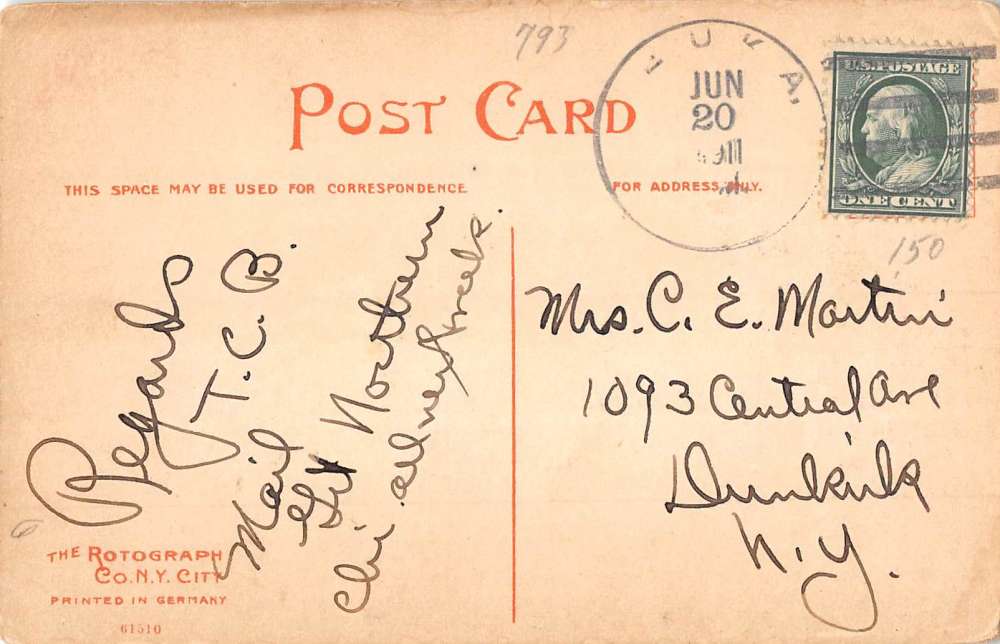 793
JUN
20
1911
U.S. POSTAGE
ONE CENT
150
POST CARD
THIS SPACE MAY BE USED FOR CORRESPONDENCE
FOR ADDRESS ONLY.
Regards
T. C. B.
Mail
Gt Northern
Chi. all next week.
Mrs. C. E. Martin
1093 Central Ave
Dunkirk
N. Y.
THE ROTOGRAPH
CO. N.Y. CITY
PRINTED IN GERMANY
61510